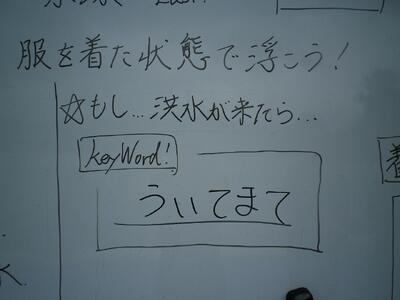 服を着た状態で浮こう!
☆もし...洪水が来たら...
KeyWord!
ういてまて